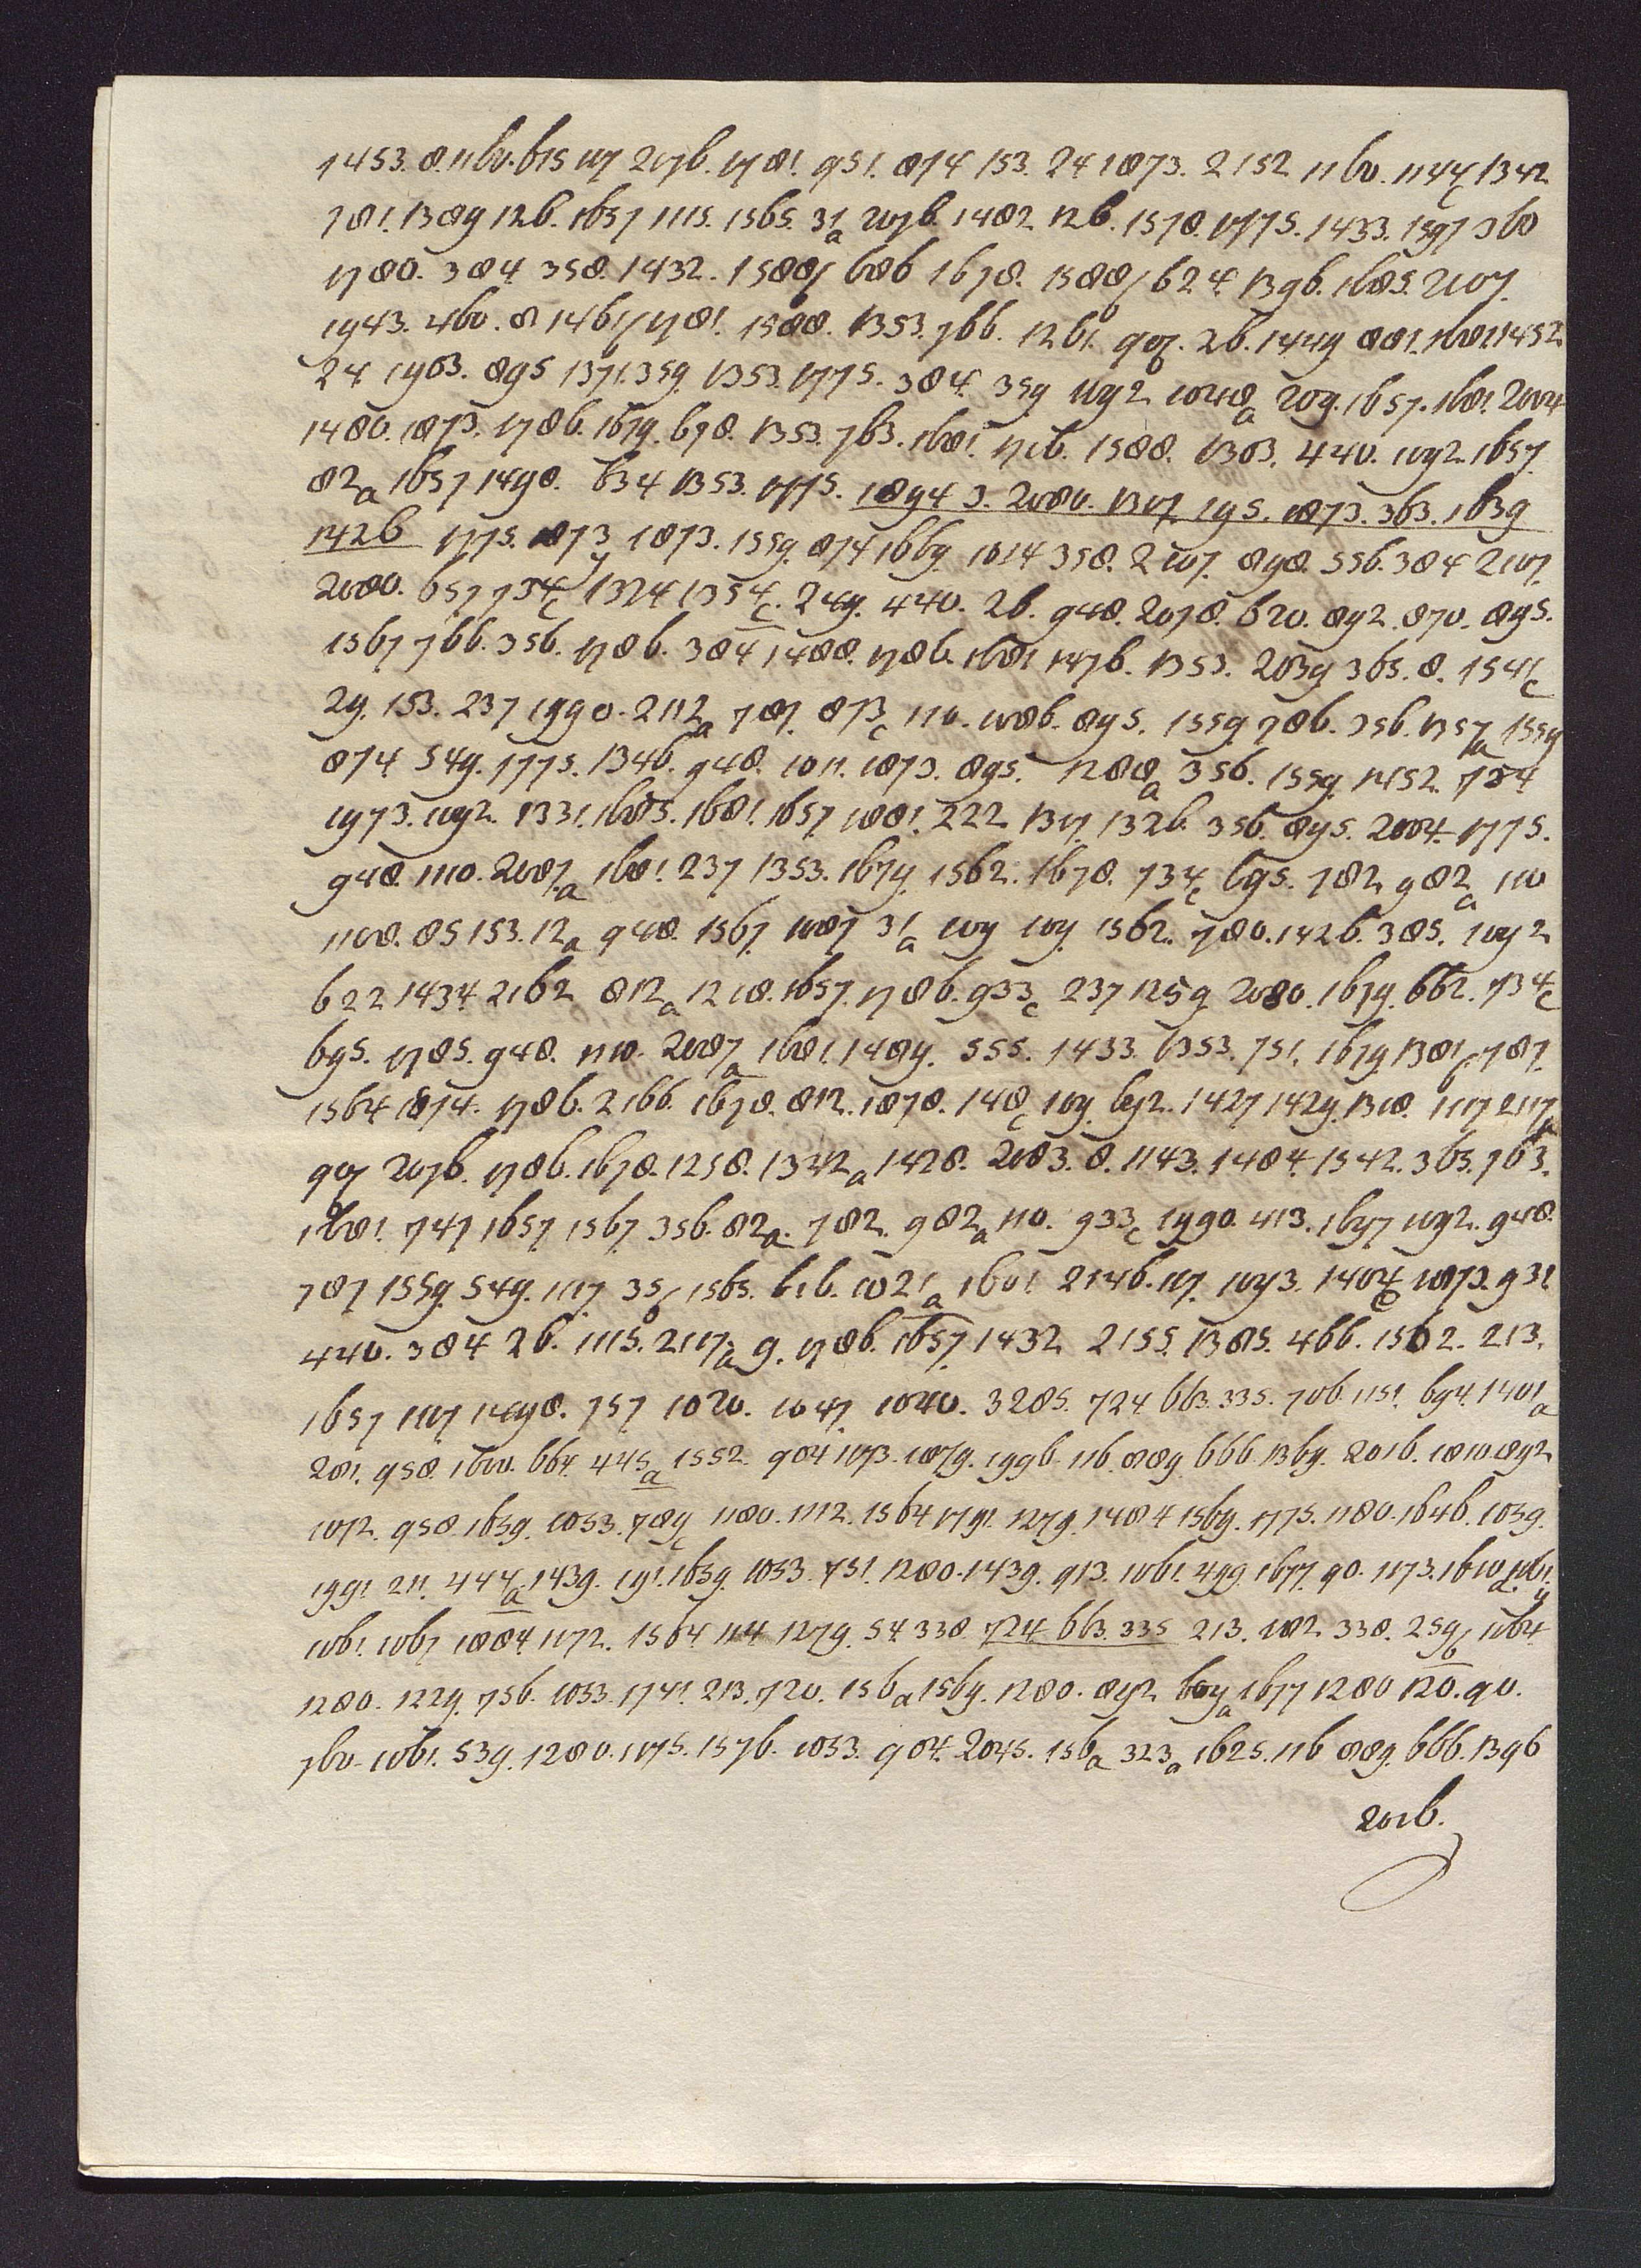 1453. 8. 1160. 615 117 2076. 1781. 951. 874 153. 24 1873. 2152 1160. 1144c 1342
781. 1389 126. 1657 1115. 1565. 31a 2076. 1482 126. 1578. 1775. 1433. 1597 360
1780. 384 358. 1432. 1588b 686 1678. 1588b 624. 1396. 1685. 2107.
1943. 460. 8 1461b 1781. 1588. 1353. 766. 1261. 907b. 26. 1449 881. 1681 1452
24 1963. 895 1371. 359 1353. 1775. 384. 359 1192 10248a 209. 1657. 1681. 2004
1480. 1873. 1786. 1679. 698. 1353. 763. 1681. 1716. 1588. 1303. 440. 1092. 1657.
82a 1657 1498. 634 1353. 1775. 1894 3. 2080. 1307. 195. 1873. 363. 1639
1426 1775. 1873 1873. 1559. 874 1669. 1014 358. 2107. 898. 556. 384 2107.
2080. 657 734c 1324 1354c. 249. 440. 26. 948. 2078. 620. 892. 870. 895.
1567 766. 356. 1786. 384 1488. 1786. 1681 1476. 1353. 2039 365. 8. 1541c
29. 153. 237 1990. 2112a 787. 873c 110. 1086. 895. 1559 786. 356. 1357a 1559
874 549. 1775. 1346. 948. 1011. 1873. 895. 1288a 356. 1559. 1452. 784
1973. 1092. 1331. 1685. 1681. 1657 1081. 222 1317 1326. 356. 895. 2004. 1775.
948. 1110. 2087a 1681. 237 1353. 1679. 1562. 1678. 734c 695. 782 982a 110
1108. 85 153. 12a 948. 1567. 1087 31a 109 109. 1562. 780. 1426. 385. 1092
622 1434 2162 812a 1218. 1657. 1786. 933c 237 1259 2080. 1679. 662. 734c
695. 1785. 948. 1110. 2087a 1681. 1489. 555. 1433. 1353. 751. 1679. 1381b 787.
1564 1874. 1786. 2166. 1678. 812. 1878. 148c 109. 692. 1427 1429. 1318. 1117 2117a
907b 2076. 1786. 1678. 1258. 1342a 1428. 2083. 8. 1143. 1484. 1542. 363. 763.
1681. 747 1657 1567. 356. 82a. 782. 982a 110. 933c 1990. 413. 1697 1092. 948.
787 1559. 549. 117. 35b 1565. 616. 1021a 1681 2146. 117. 1093. 1404c 1873. 931
440. 384 26. 1115. 2117a 9. 1786. 1657. 1432 2155. 1385. 466. 1562. 213.
1657 1117 1498. 757 1020. 1047. 1040. 3285. 724 663. 335. 706. 1151. 694. 1401a
201. 958. 1600. 664. 445a 1552. 904 1173. 1079. 1996. 116. 889. 666. 1369. 2016. 1810 892
1072. 958. 1639. 1053. 789c 1180. 1112. 1564 1791. 1279. 1484 1569. 1775. 1180. 1646. 1039.
1991 211. 444a. 1439. 191. 1639. 1053. 751. 1280. 1439. 913. 1061. 499. 1677. 90. 1173. 1610 1061.
1061. 1067 1084. 1172. 1564. 114 1279. 54 338. 724. 663. 335 213. 1082. 338. 259b 1164.
1280. 1229. 756. 1053. 1741. 213. 720. 156a 1569. 1280. 892 609a 1677 1280 120. 90.
760. 1061. 539. 1280. 1175. 1576. 1053. 904. 2045. 156a 323a 1625. 116 889. 666. 1396
2016.